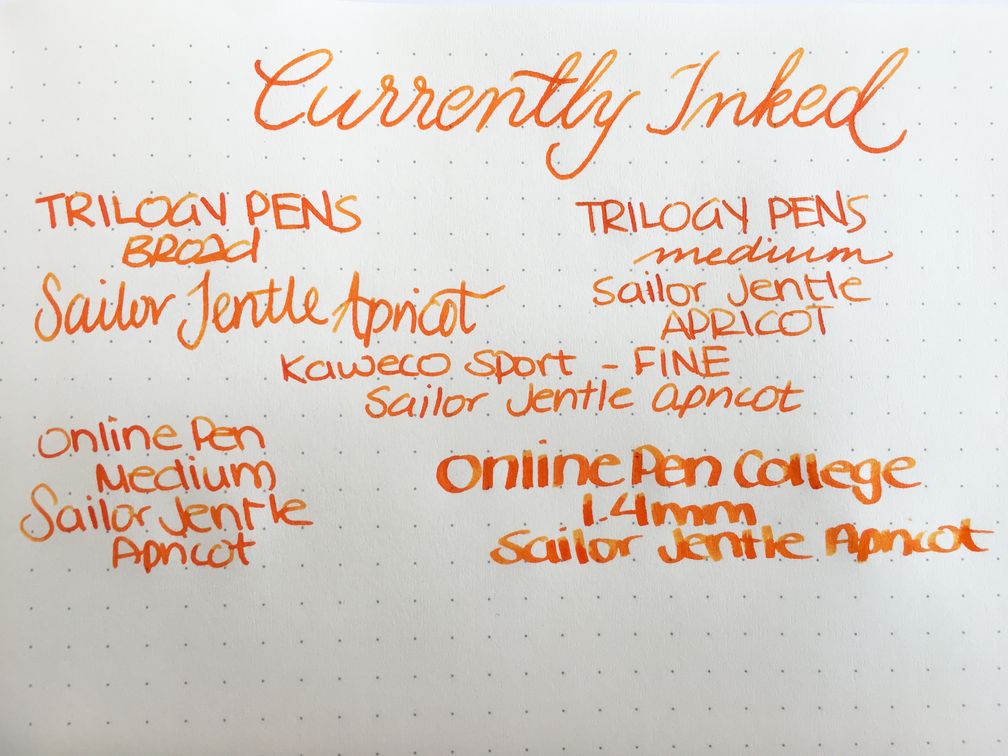 Currently Inked
TRILOGY PENS
BROAD
Sailor Jentle Apricot
TRILOGY PENS
medium
Sailor Jentle
APRICOT
Kaweco Sport - FINE
Sailor Jentle Apricot
Online Pen
Medium
Sailor Jentle
Apricot
Online Pen College
1.4mm
Sailor Jentle Apricot